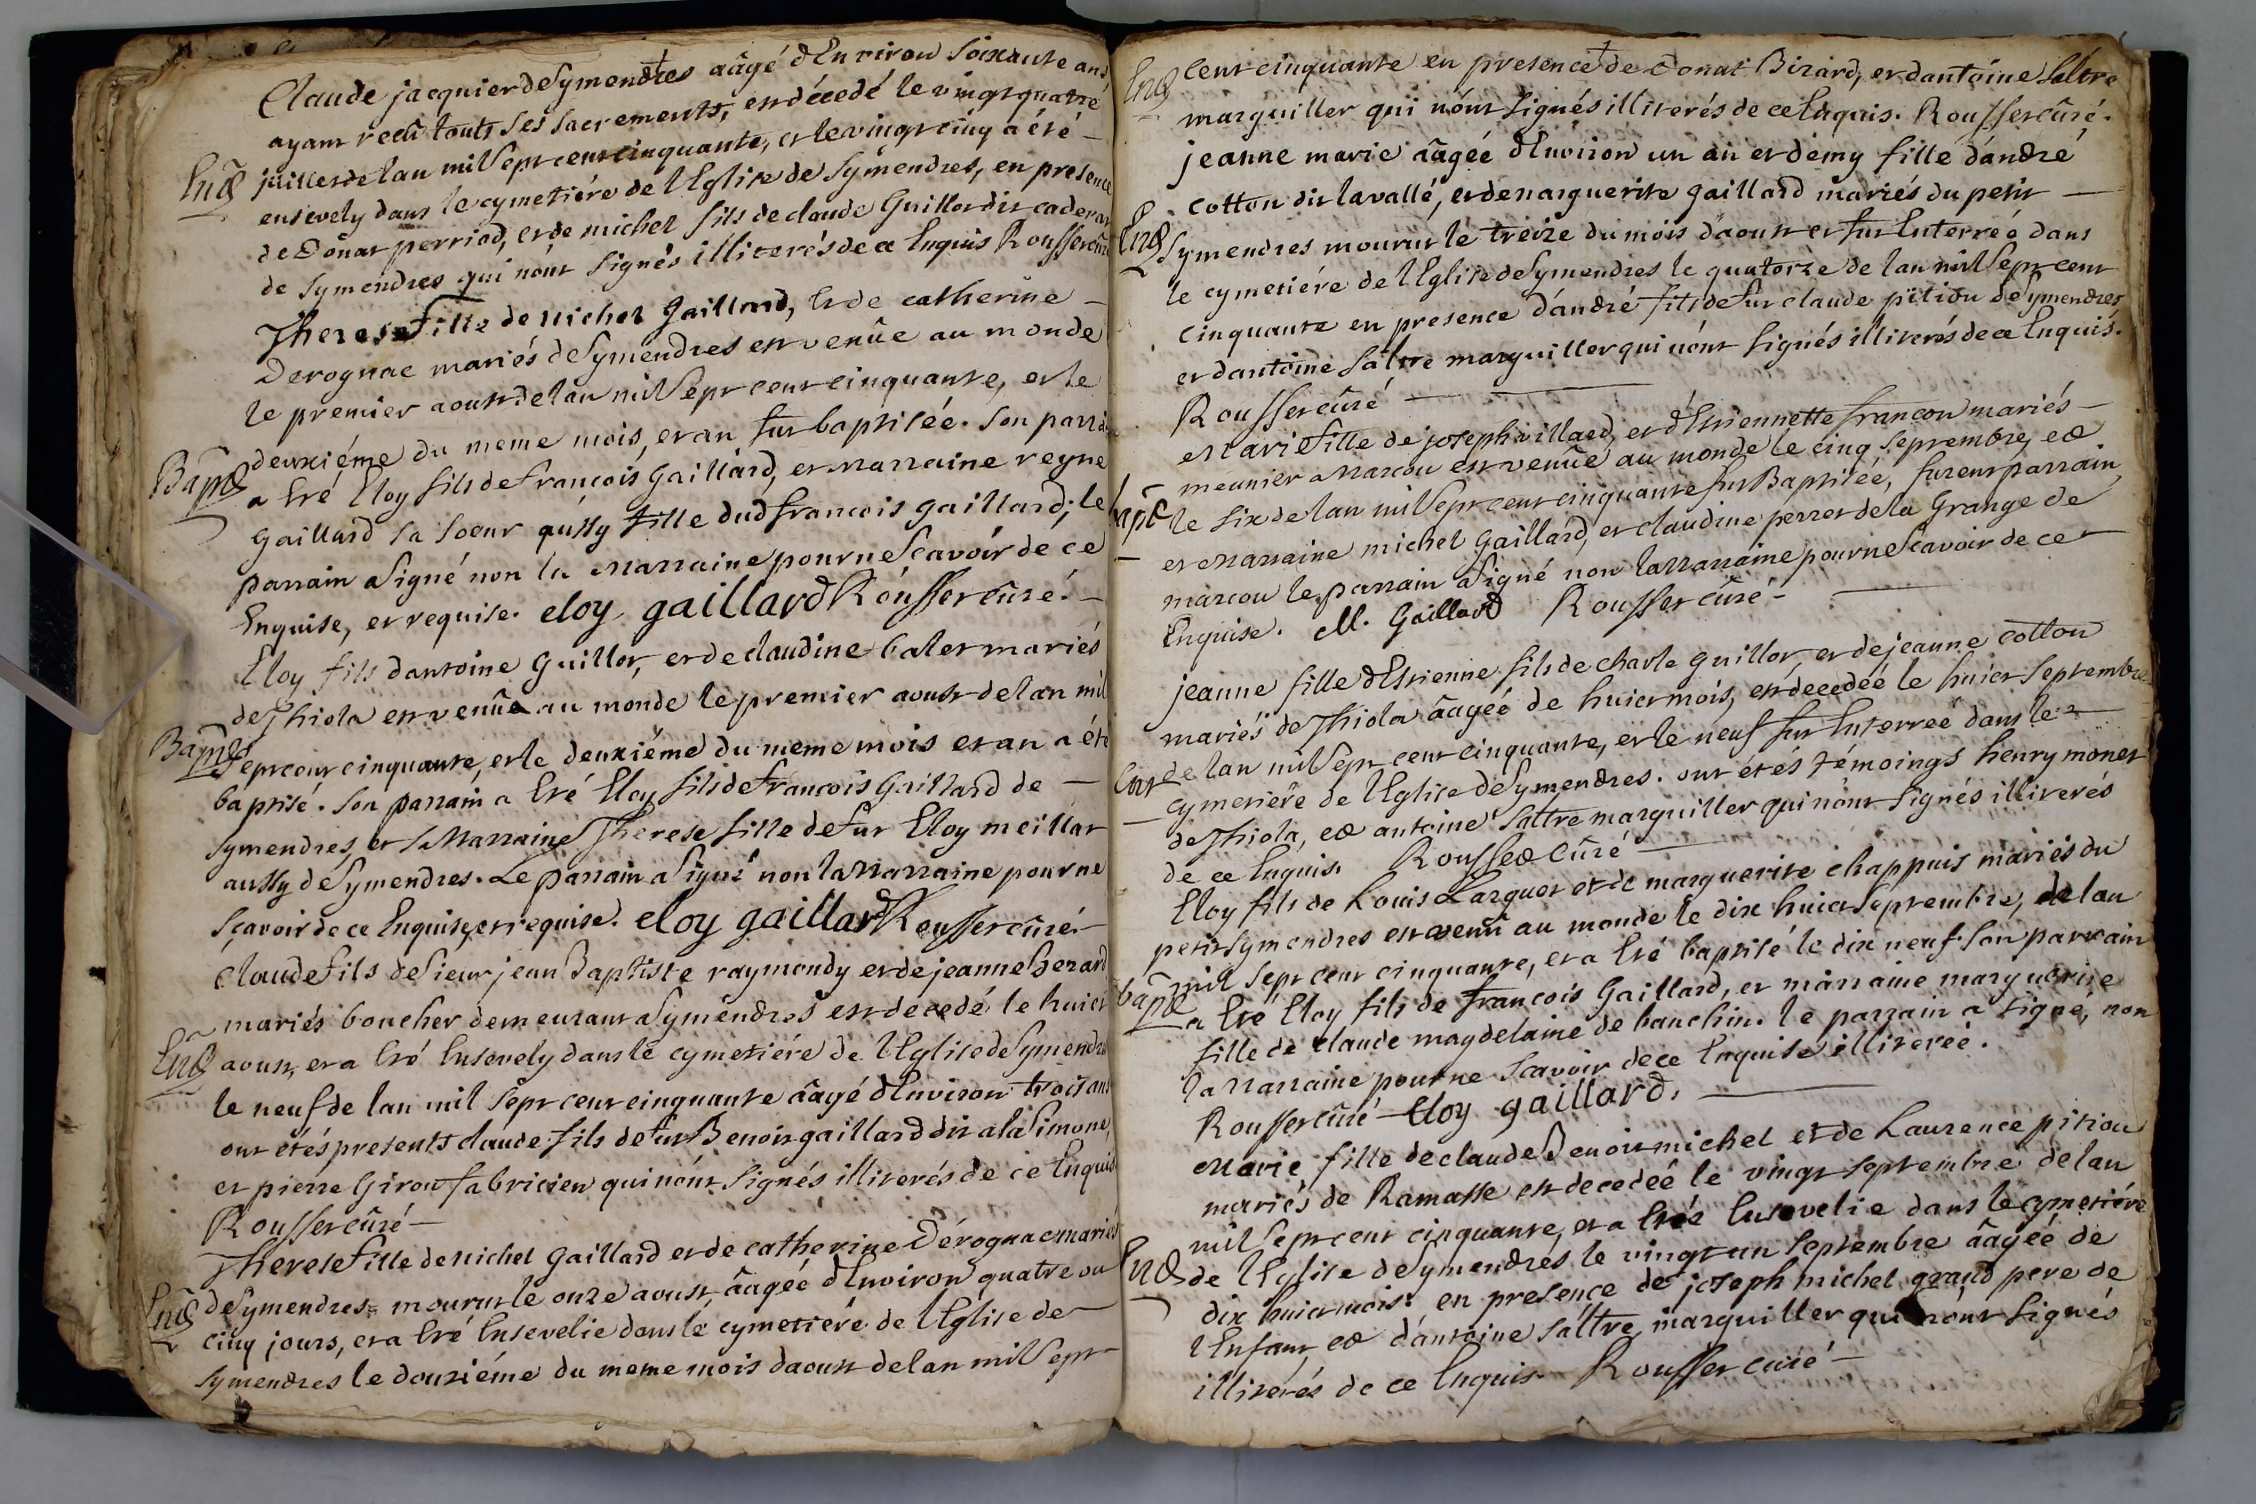 Claude jacquier de Symendres aâgé d'Environ soixante ans
ayant recû touts ses sacrements, est décedé le vingt quatre
Ent juillet de lan mil sept cent cinquante, et le vingt cinq a été
ensevely dans le cymetiére de l'Eglise de Symendres, en presence
de Donat perriod, et de michel fils de claude Guillot dit
de Symendres qui n'ont signés illiterés de ce Enquis Rousset curé
Therese fille de Michel Gaillard, et de catherine
Derognac mariés de Symendres est venûe au monde
le premier aoust de lan mil sept cent cinquante, et le
deuxiéme du meme mois, et an fut baptisée. son parrain
Bapt a Eté Eloy fils de françois Gaillard, et Marraine reyne
Gaillard sa soeur aussy fille dud françois gaillard; le
parrain a signé non la Marraine pour ne scavoir de ce
Enquise, et requise. eloy gaillard Rousset curé.
Eloy fils dantoine Guillot, et de claudine balet mariés
de Thiola est venûe au monde le premier aoust de lan mil
Bapt sept cent cinquante, et le deuxiéme du meme mois et an a été
baptisé. son parrain a Eté Eloy fils de francois Gaillard de
Symendres, et sa Marraine Therese fille de fut Eloy meillat
aussy de Symendres. Le parrain a signé non la Marraine pour ne
sçavoir de ce Enquise, et requise. eloy gaillard Rousset curé
Claude fils de sieur jean Baptiste raymondy et de jeanne Bezard
mariés boucher demeurant a Symendres est décedé le huict
Ent aoust, et a Eté Ensevely dans le cymetiére de l'Eglise de Symendres
le neuf de lan mil sept cent cinquante aâgé d'Environ trois ans
ont étés presents claude fils de fut Benoit gaillard dit a la simone,
et pierre Girou fabricien qui n'ont signés illiterés de ce Enquis
Rousset curé
Therese fille de Michel Gaillard et de catherine Dérognac mariés
Ent de Symendres mourut le onze aoust, aâgée d'Environ quatre ou
cinq jours, et a Eté Ensevelie dans le cymetiére de l'Eglise de
Symendres le douxiéme du meme mois daoust de lan mil sept
Ent cent cinquante en presence de Donat Bizard, et dantoine saltre
marguiller qui n'ont signés illiterés de ce Enquis. Rousset curé.
jeanne marie aâgée d'Environ un an et demy fille d'andré
cotton dit lavallé, et de marguerite gaillard mariés du petit
Ent Symendres mourut le treize du mois d'aoust et fut Enterréé dans
le cymetiére de l'Eglise de Symendres le quatorze de lan mil sept cent
cinquante en presence d'andré fils de fut claude pition de Symendres,
et dantoine saltre marguiller qui n'ont signés illiterés de ce Enquis.
Rousset curé
Marie fille de joseph villard, et d'Estiennette francon mariés
meunier a Marcou est venûe au monde le cinq septembre, et
bapt le six de lan mil sept cent cinquante fut Baptisée, furent parrain
et Marraine michel Gaillard, et claudine perret de la Grange de
marcou le parrain a signé non la Marraine pour ne scavoir de ce
Enquise. M. Gaillard Rousset curé
jeanne fille d'Estienne fils de charle guillot, et de jeanne cotton
mariés de Thiola aâgée de huict mois, est decedée le huict septembre
Ent de lan mil sept cent cinquante, et le neuf fut Enterreé dans le
cymetiére de l'Eglise de Symendres. ont étés témoings henry monet
de Thiola, et antoine saltre marguiller qui n'ont signés illiterés
de ce Enquis. Rousset curé
Eloy fils de Louis Larguet et de marguerite chappuis mariés du
petit Symendres est venu au monde le dix huict septembre, de lan
bapt mil sept cent cinquante, et a Eté baptisé le dix neuf son parrain
a Eté Eloy fils de francois Gaillard, et marraine marguerite
fille de claude magdelaine de banchin. le parrain a signé, non
la Marraine pour ne scavoir de ce Enquise illiterée.
Rousset curé Eloy gaillard.
Marie fille de claude Benoit michel et de Laurence pition
mariés de Ramasse est decedée le vingt septembre de lan
mil sept cent cinquante, et a Etée Ensevelie dans le cymetiére
Ent de l'Eglise de Symendres le vingt un septembre aâgée de
dix huict mois. en presence de joseph michel grand pere de
l'Enfant, et d'antoine saltre marguiller qui n'ont signés
illiterés de ce Enquis. Rousset curé